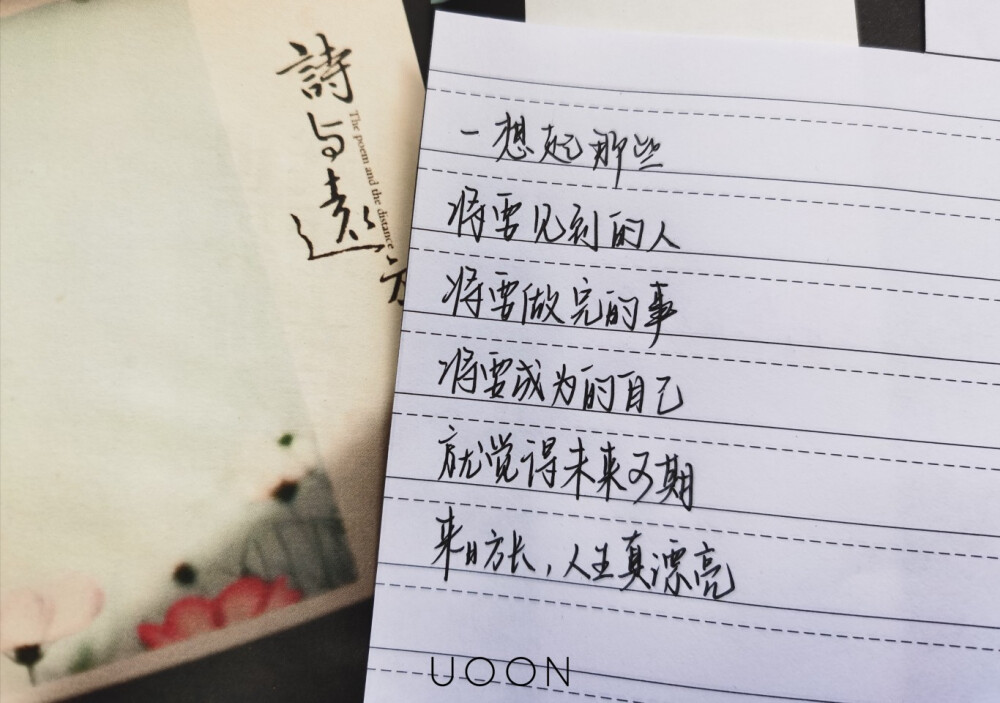 詩与遠方
The poem and the distance
一想起那些
将要见到的人
将要做完的事
将要成为的自己
就觉得未来可期
来日方长，人生真漂亮
UOON